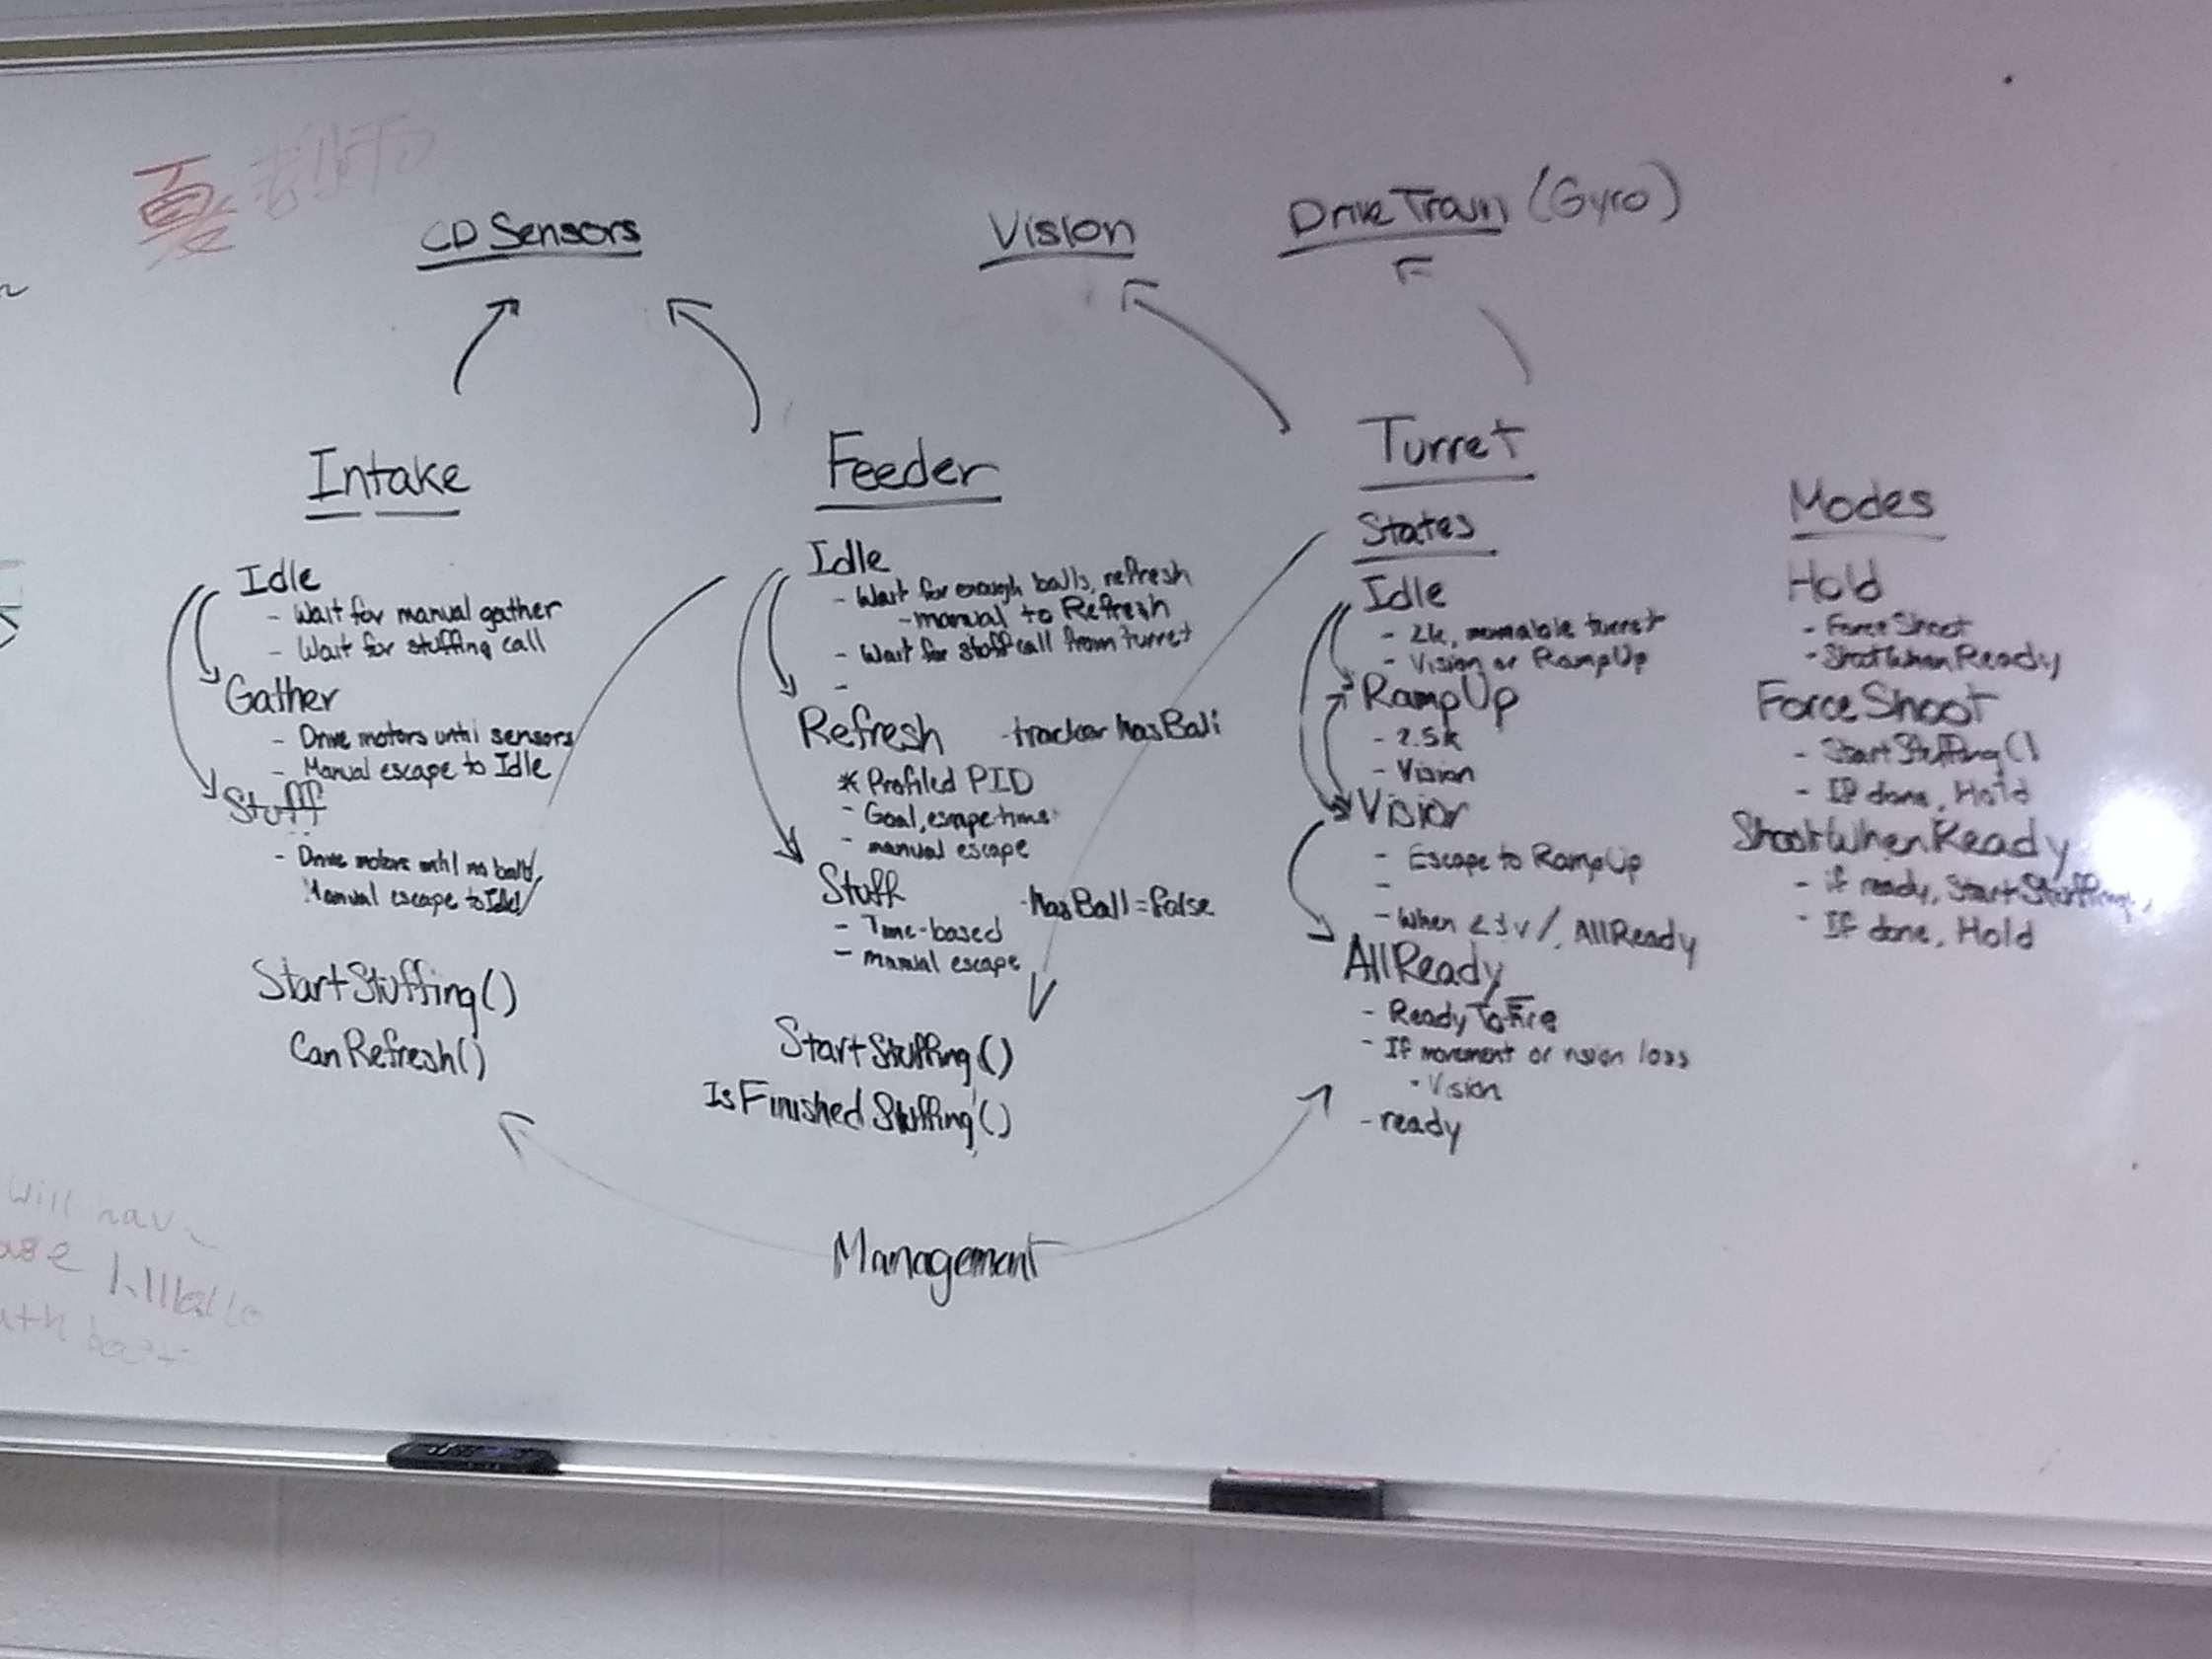 夏老师
CD Sensors
Vision
DriveTrain (Gyro)
Intake
Idle
- Wait for manual gather
- Wait for stuffing call
Gather
- Drive motors until sensors
- Manual escape to Idle
Stuff
- Drive motors until no balls
Manual escape to Idle
StartStuffing()
CanRefresh()
Feeder
Idle
- Wait for enough balls, refresh
- manual to Refresh
- Wait for stuff call from turret
-
Refresh - tracker hasBall
* Profiled PID
- Goal, escape time
- manual escape
Stuff - hasBall = false
- Time-based
- manual escape
StartStuffing()
IsFinishedStuffing()
Turret
States
Idle
- 2k, turret
- Vision or RampUp
RampUp
- 2.5k
- Vision
Vision
- Escape to RampUp
-
- When AllReady
AllReady
- ReadyToFire
- If movement or vision loss
- Vision
- ready
Modes
Hold
- ForceShoot
- ShootWhenReady
ForceShoot
- StartStuffing()
- If done, Hold
ShootWhenReady
- if ready, StartStuffing
- If done, Hold
Management
will have